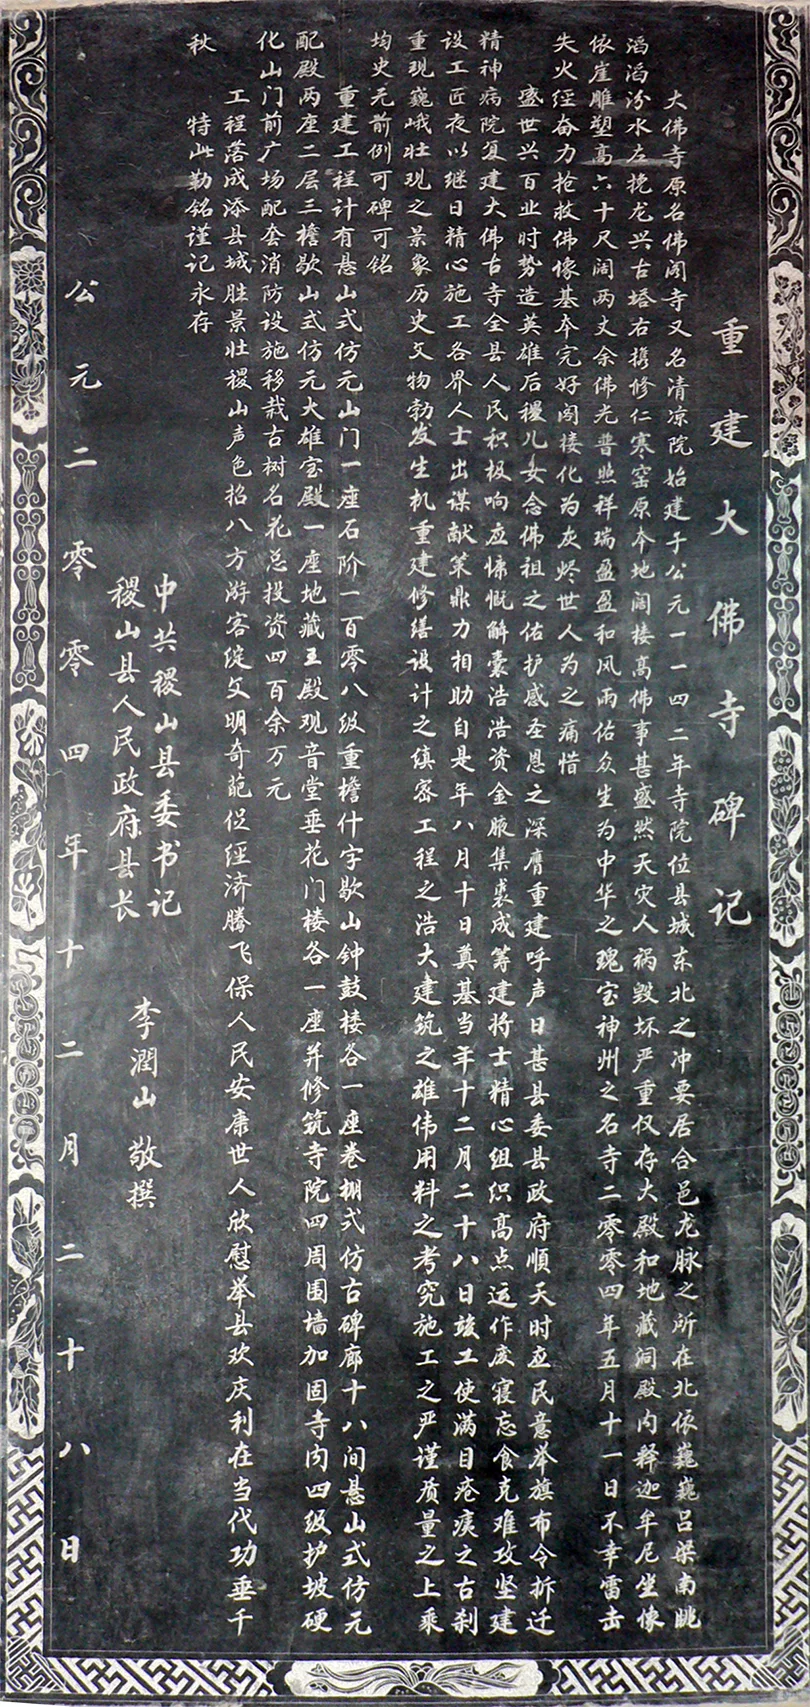 重建大佛寺碑记
大佛寺原名佛阁寺又名清凉院始建于公元一一四二年寺院位县城东北之冲要居合邑龙脉之所在北依巍巍吕梁南眺
滔滔汾水左挽龙兴古塔右携修仁寒窑原本地阔楼高佛事甚盛然天灾人祸毁坏严重仅存大殿和地藏洞殿内释迦牟尼坐像
依崖雕塑高六十尺阔两丈余佛光普照祥瑞盈盈和风雨佑众生为中华之瑰宝神州之名寺二零零四年五月十一日不幸雷击
失火经奋力抢救佛像基本完好阁楼化为灰烬世人为之痛惜
盛世兴百业时势造英雄后稷儿女念佛祖之佑护感圣恩之深膺重建呼声日甚县委县政府顺天时应民意举旗布令拆迁
精神病院复建大佛古寺全县人民积极响应慷慨解囊浩浩资金腋集裘成筹建将士精心组织高点运作废寝忘食克难攻坚建
设工匠夜以继日精心施工各界人士出谋献策鼎力相助自是年八月十日奠基当年十二月二十八日竣工使满目疮痍之古刹
重现巍峨壮观之景象历史文物勃发生机重建修缮设计之缜密工程之浩大建筑之雄伟用料之考究施工之严谨质量之上乘
均史元前例可碑可铭
重建工程计有悬山式仿元山门一座石阶一百零八级重檐什字歇山钟鼓楼各一座卷棚式仿古碑廊十八间悬山式仿元
配殿两座二层三檐歇山式仿元大雄宝殿一座地藏王殿观音堂垂花门楼各一座并修筑寺院四周围墙加固寺内四级护坡硬
化山门前广场配套消防设施移栽古树名花总投资四百余万元
工程落成添县城胜景壮稷山声色招八方游客绽文明奇葩促经济腾飞保人民安康世人欣慰举县欢庆利在当代功垂千
秋
特此勒铭谨记永存
中共稷山县委书记
稷山县人民政府县长
李润山 敬撰
公元二零零四年十二月二十八日